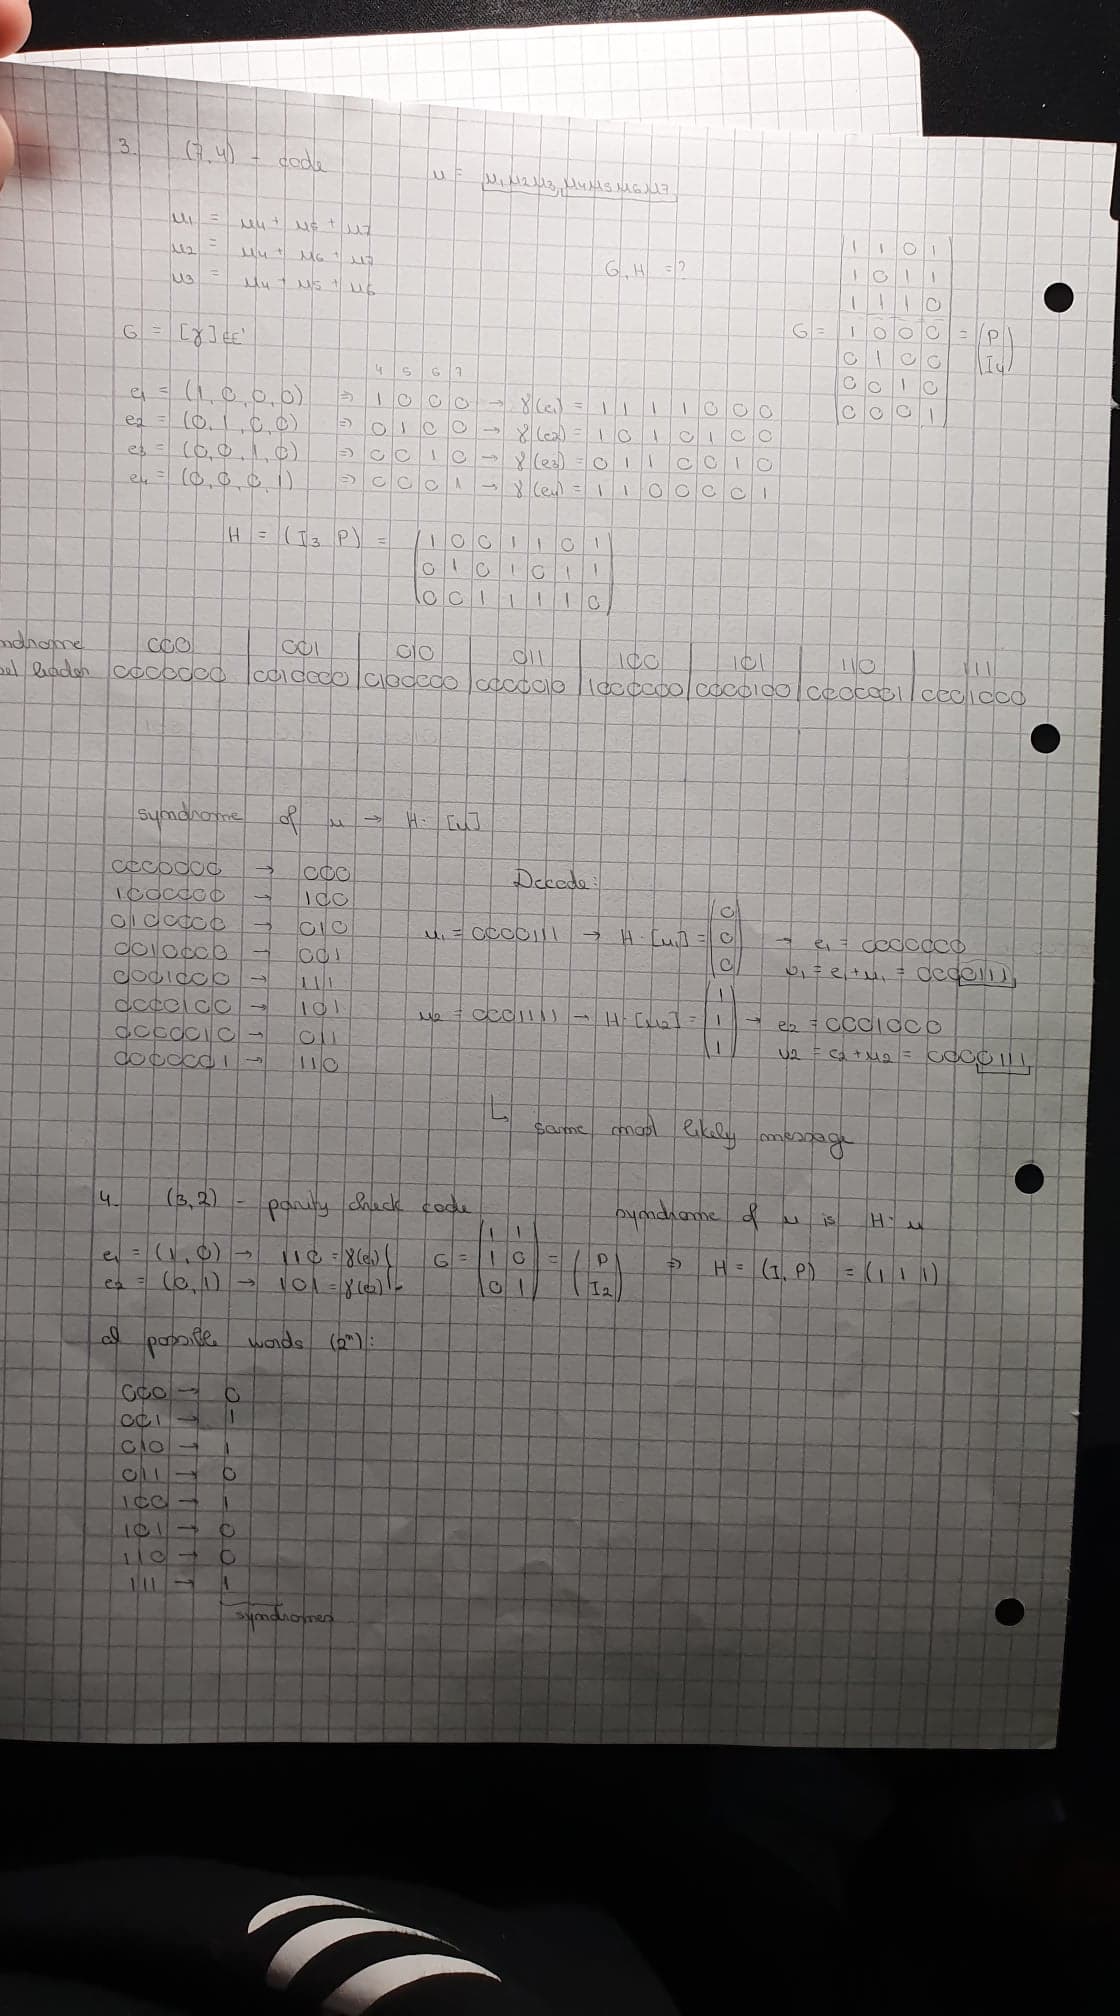 3. (7,4) - code u = u1u2u3, u4u5u6u7
u1 = u4 + u5 + u7
u2 = u4 + u6 + u7
u3 = u4 + u5 + u6
G, H = ?
1 1 0 1
1 0 1 1
1 1 1 0
G = 1 0 0 0 = (P
0 1 0 0 I4)
0 0 1 0
0 0 0 1
G = [γ]EE'
4 5 6 7
e1 = (1, 0, 0, 0) => 1 0 0 0 → γ(e1) = 1 1 1 1 0 0 0
e2 = (0, 1, 0, 0) => 0 1 0 0 → γ(e2) = 1 0 1 0 1 0 0
e3 = (0, 0, 1, 0) => 0 0 1 0 → γ(e3) = 0 1 1 0 0 1 0
e4 = (0, 0, 0, 1) => 0 0 0 1 → γ(e4) = 1 1 0 0 0 0 1
H = (I3 P) = 1 0 0 1 1 0 1
0 1 0 1 0 1 1
0 0 1 1 1 1 0
ndrome 000 001 010 011 100 101 110 111
leader 0000000 0010000 0100000 0000010 1000000 0000100 0000001 0001000
syndrome of u → H · [u]
0000000 → 000
1000000 → 100
0100000 → 010
0010000 → 001
0001000 → 111
0000100 → 101
0000010 → 011
0000001 → 110
Decode:
u1 = 0000111 → H · [u1] = (0 0 0) → e1 = 0000000
v1 = e1 + u1 = 0000111
u2 = 0001111 → H · [u2] = (1 1 1) → e2 = 0001000
v2 = e2 + u2 = 0000111
↳ same most likely message
4. (3,2) - parity check code syndrome of u is H · u
e1 = (1, 0) → 110 = γ(e1)
e2 = (0, 1) → 101 = γ(e2)
1 1
G = 1 0 = (P
0 1 I2) => H = (I, P) = (1 1 1)
all possible words (2ⁿ):
000 → 0
001 → 1
010 → 1
011 → 0
100 → 1
101 → 0
110 → 0
111 → 1
syndromes